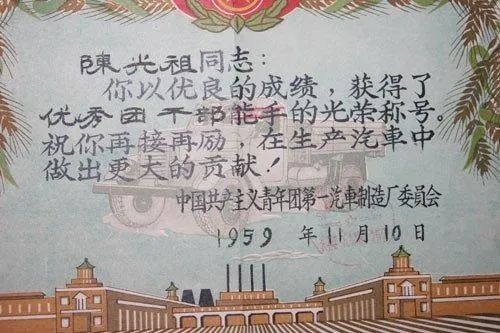 陳光祖同志：
你以优良的成绩，获得了
优秀团干部能手的光荣称号。
祝你再接再励，在生产汽車中
做出更大的贡献！
中国共产主义青年团第一汽車制造厂委員会
1959 年 11 月 10 日